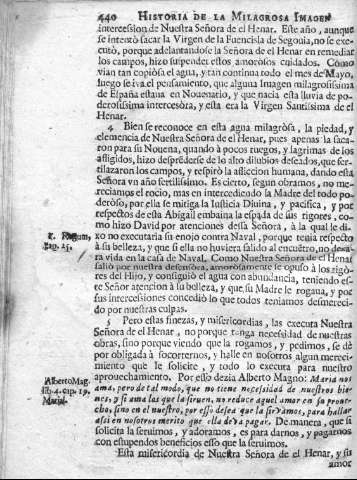 440 HISTORIA DE LA MILAGROSA IMAGEN
intercession de Nuestra Señora de el Henar. Este año, aunque
se intentò sacar la Virgen de la Fuencisla de Segouia, no se exe-
cutò, porque adelantandose la Señora de el Henar en remediar
los campos, hizo suspender estos amorosos cuidados. Cómo
vian tan copiosa el agua, y tan continua todo el mes de Mayo,
luego se iva el pensamiento, que alguna Imagen milagrosa
de España estaua en Nouenario, y que nacia esta lluvia de po-
derosissima intercessora, y esta era la Virgen Santissima de el
Henar.
4 Bien se reconoce en esta agua milagrosa, la piedad, y
clemencia de Nuestra Señora de el Henar, pues apenas la saca-
ron para su Nouena, quando a pocos ruegos, y lagrimas de los
afligidos, hizo desprēderse de lo alto dilubios deseados, que fer-
tilazaron los campos, y respirò la afliccion humana, dando esta
Señora vn año fertilissimo. Es cierto, segun obramos, no me-
reciamos el rocio, mas en intercediendo la Madre del todo po-
deroso, por ella se mitiga la Iusticia Diuina, y pacifica, y por
respectos de esta Abigail embaina la espada de sus rigores, co-
mo hizo David por atenciones dessa Señora, à la qual le di-
xo no executaria su enojo contra Naval, porque tenia respecto
à su belleza, y que si ella no huviera salido al encuētro, no dexa-
ra vida en la casa de Naval. Como Nuestra Señora de el Henar
saliò por nuestra defensora, amorosamente se opuso à los rigo-
res del Hijo, y consiguiò el agua con abundancia, teniendo es-
te Señor atencion à su belleza, y que su Madre le rogaua, y por
sus intercessiones concediò lo que todos teniamos desmereci-
do por nuestras culpas.
5 Pero estas finezas, y misericordias, las executa Nuestra
Señora de el Henar, no porque tenga necessidad de nuestras
obras, sino porque viendo que la rogamos, y pedimos, se dè
por obligada à socorrernos, y halle en nosotros algun mereci-
miento que le solicite, y todo lo executa para nuestro
aprouechamiento. Por esso dezia Alberto Magno: Maria nos
ama, pero de tal modo, que no tiene necessidad de nuestros bie-
nes, y si ama las que la siruen, no reduce aquel amor en su proue-
cho, sino en el nuestro, por esso desea que la sirvamos, para hallar
assi en nosotros merito que ella deva pagar. De manera, que si
solicita la siruimos, y adoramos, es para darnos, y pagarnos
con estupendos beneficios esso que la seruimos.
Esta misericordia de Nuestra Señora de el Henar, y su
amor
1. Regum,
cap. 25.
Alberto Mag.
lib. 4. cap. 19.
Marial.